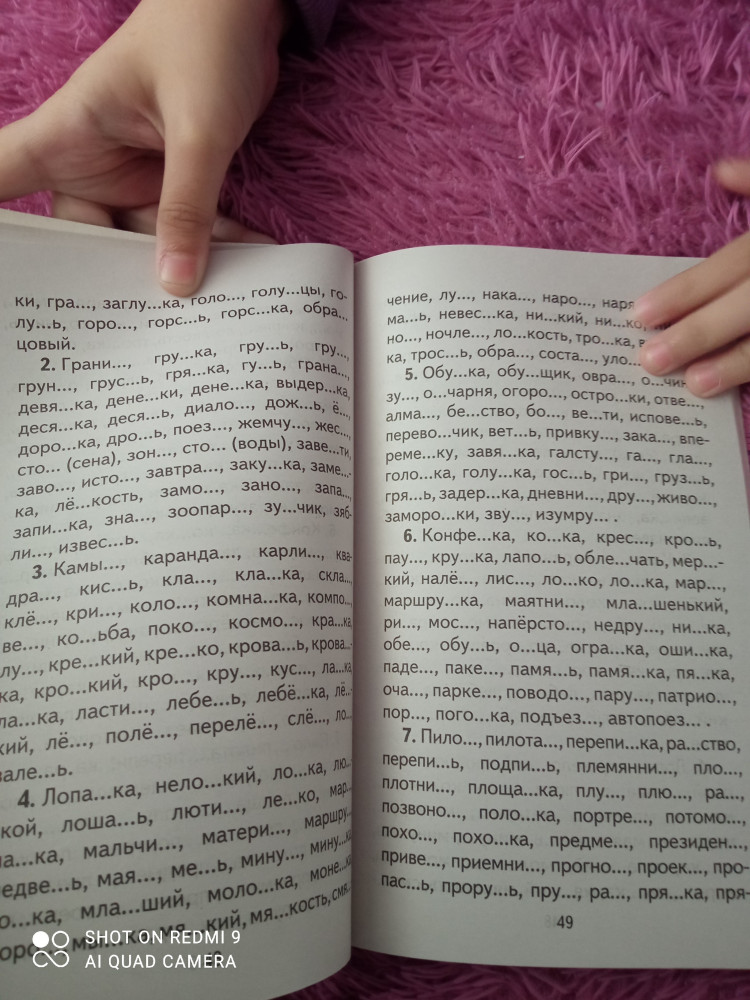 ки, гра..., заглу...ка, голо..., голу...цы, го-
лу...ь, горо..., горс...ь, горс...ка, обра...
цовый.
2. Грани..., гру...ка, гру...ь, гру...,
грун..., грус...ь, гря...ка, гу...ь, грана...,
девя...ка, дене...ки, дене...ка, выдер...ка,
деся...ка, деся...ь, диало..., дож...ь, ё...,
доро...ка, дро...ь, поез..., жемчу..., жес...,
сто... (сена), зон..., сто... (воды), заве...ти,
заво..., исто..., завтра..., заку...ка, заме...-
ка, лё...кость, замо..., зано..., запа...,
запи...ка, зна..., зоопар..., зу...чик, зяб-
ли..., извес...ь.
3. Камы..., каранда..., карли..., ква-
дра..., кис...ь, кла..., кла...ка, скла...,
клё..., кри..., коло..., комна...ка, компо...,
ве..., ко...ьба, поко..., космо..., кра...ка,
лу..., кре...кий, кре...ко, крова...ь, крова...-
ка, кро...кий, кро..., кру..., кус..., ла...ка,
ла...ка, ласти..., лебе...ь, лебё...ка, лё...-
кий, лё..., полё..., перелё..., слё..., ло...
зале...ь.
4. Лопа...ка, нело...кий, ло...ка, лю...-
ской, лоша...ь, люти..., ле...ко, мар...
ма...ка, мальчи..., матери..., маршру...
медве...ь, мая..., ме...ь, мину..., мину...ка
ло...ка, мла...ший, моло...ка, моне...ка
морс... мы...ка, мя...кий, мя...кость, смя...
чение, лу..., нака..., наро..., наря
ма...ь, невес...ка, ни...кий, ни...ко,
но..., ночле..., ло...кость, тро...ка,
ка, трос...ь, обра..., соста..., уло...
5. Обу...ка, обу...щик, овра..., о...чин
зу..., о...чарня, огоро..., остро...ки, отве...,
алма..., бе...ство, бо..., ве...ти, испове...ь,
перево...чик, вет...ь, привку..., зака..., впе-
реме...ку, завя...ка, галсту..., га..., гла...,
голо...ка, голу...ка, гос...ь, гри..., груз...ь,
гря...ь, задер...ка, дневни..., дру..., живо...,
заморо...ки, зву..., изумру... .
6. Конфе...ка, ко...ка, крес..., кро...ь,
пау..., кру...ка, лапо...ь, обле...чать, мер...-
кий, налё..., лис..., ло...ко, ло...ка, мар...,
маршру...ка, маятни..., мла...шенький,
ри..., мос..., напёрсто..., недру..., ни...ка,
обе..., обу...ь, о...ца, огра...ка, оши...ка,
паде..., паке..., памя...ь, памя...ка, пя...ка,
оча..., парке..., поводо..., пару..., патрио...,
пор..., пого...ка, подъез..., автопоез... .
7. Пило..., пилота..., перепи...ка, ра...ство,
перепи...ь, подпи...ь, племянни..., пло...,
плотни..., площа...ка, плу..., плю..., ра...,
позвоно..., поло...ка, портре..., потомо...,
похо..., похо...ка, предме..., президен...,
приве..., приемни..., прогно..., проек..., про-
пас...ь, прору...ь, пру..., ра..., пря...ка, пря-
49
SHOT ON REDMI 9
AI QUAD CAMERA